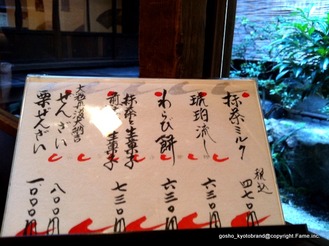 抹茶ミルク
税込
四七〇円
琥珀流し
六三〇円
わらび餅
六三〇円
抹茶と生菓子
煎茶と生菓子
七三〇円
大納言
ぜんざい
八〇〇円
栗ぜんざい
一〇〇〇円
gosho_kyotobrand@copyright.Fame.inc.